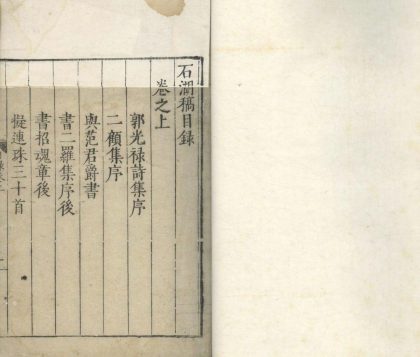 石湖稿目錄
卷之上
郭光祿詩集序
二顧集序
與范君爵書
書二羅集序後
書招魂章後
擬連珠三十首